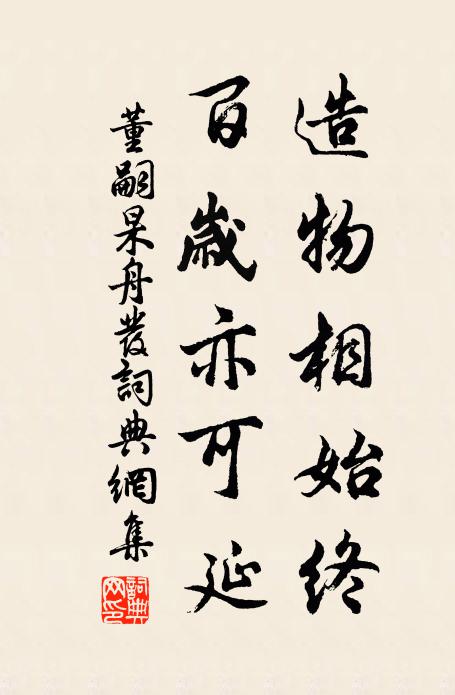 造物相始終
百歲亦可延
董嗣杲舟發詞典網集
詞典网印